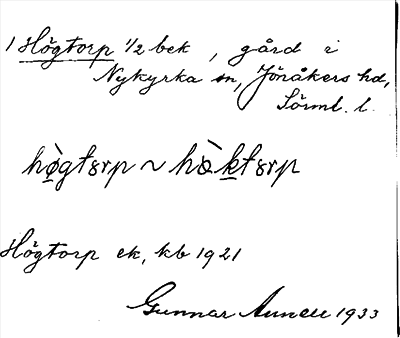 1 Högtorp 1/2 bek, gård i
Nykyrka sn, Jönåkers hd,
Sörml. l.
hø̀gtɔrp ~ hø̀ktɔrp
Högtorp ek, kb 1921
Gunnar 1933